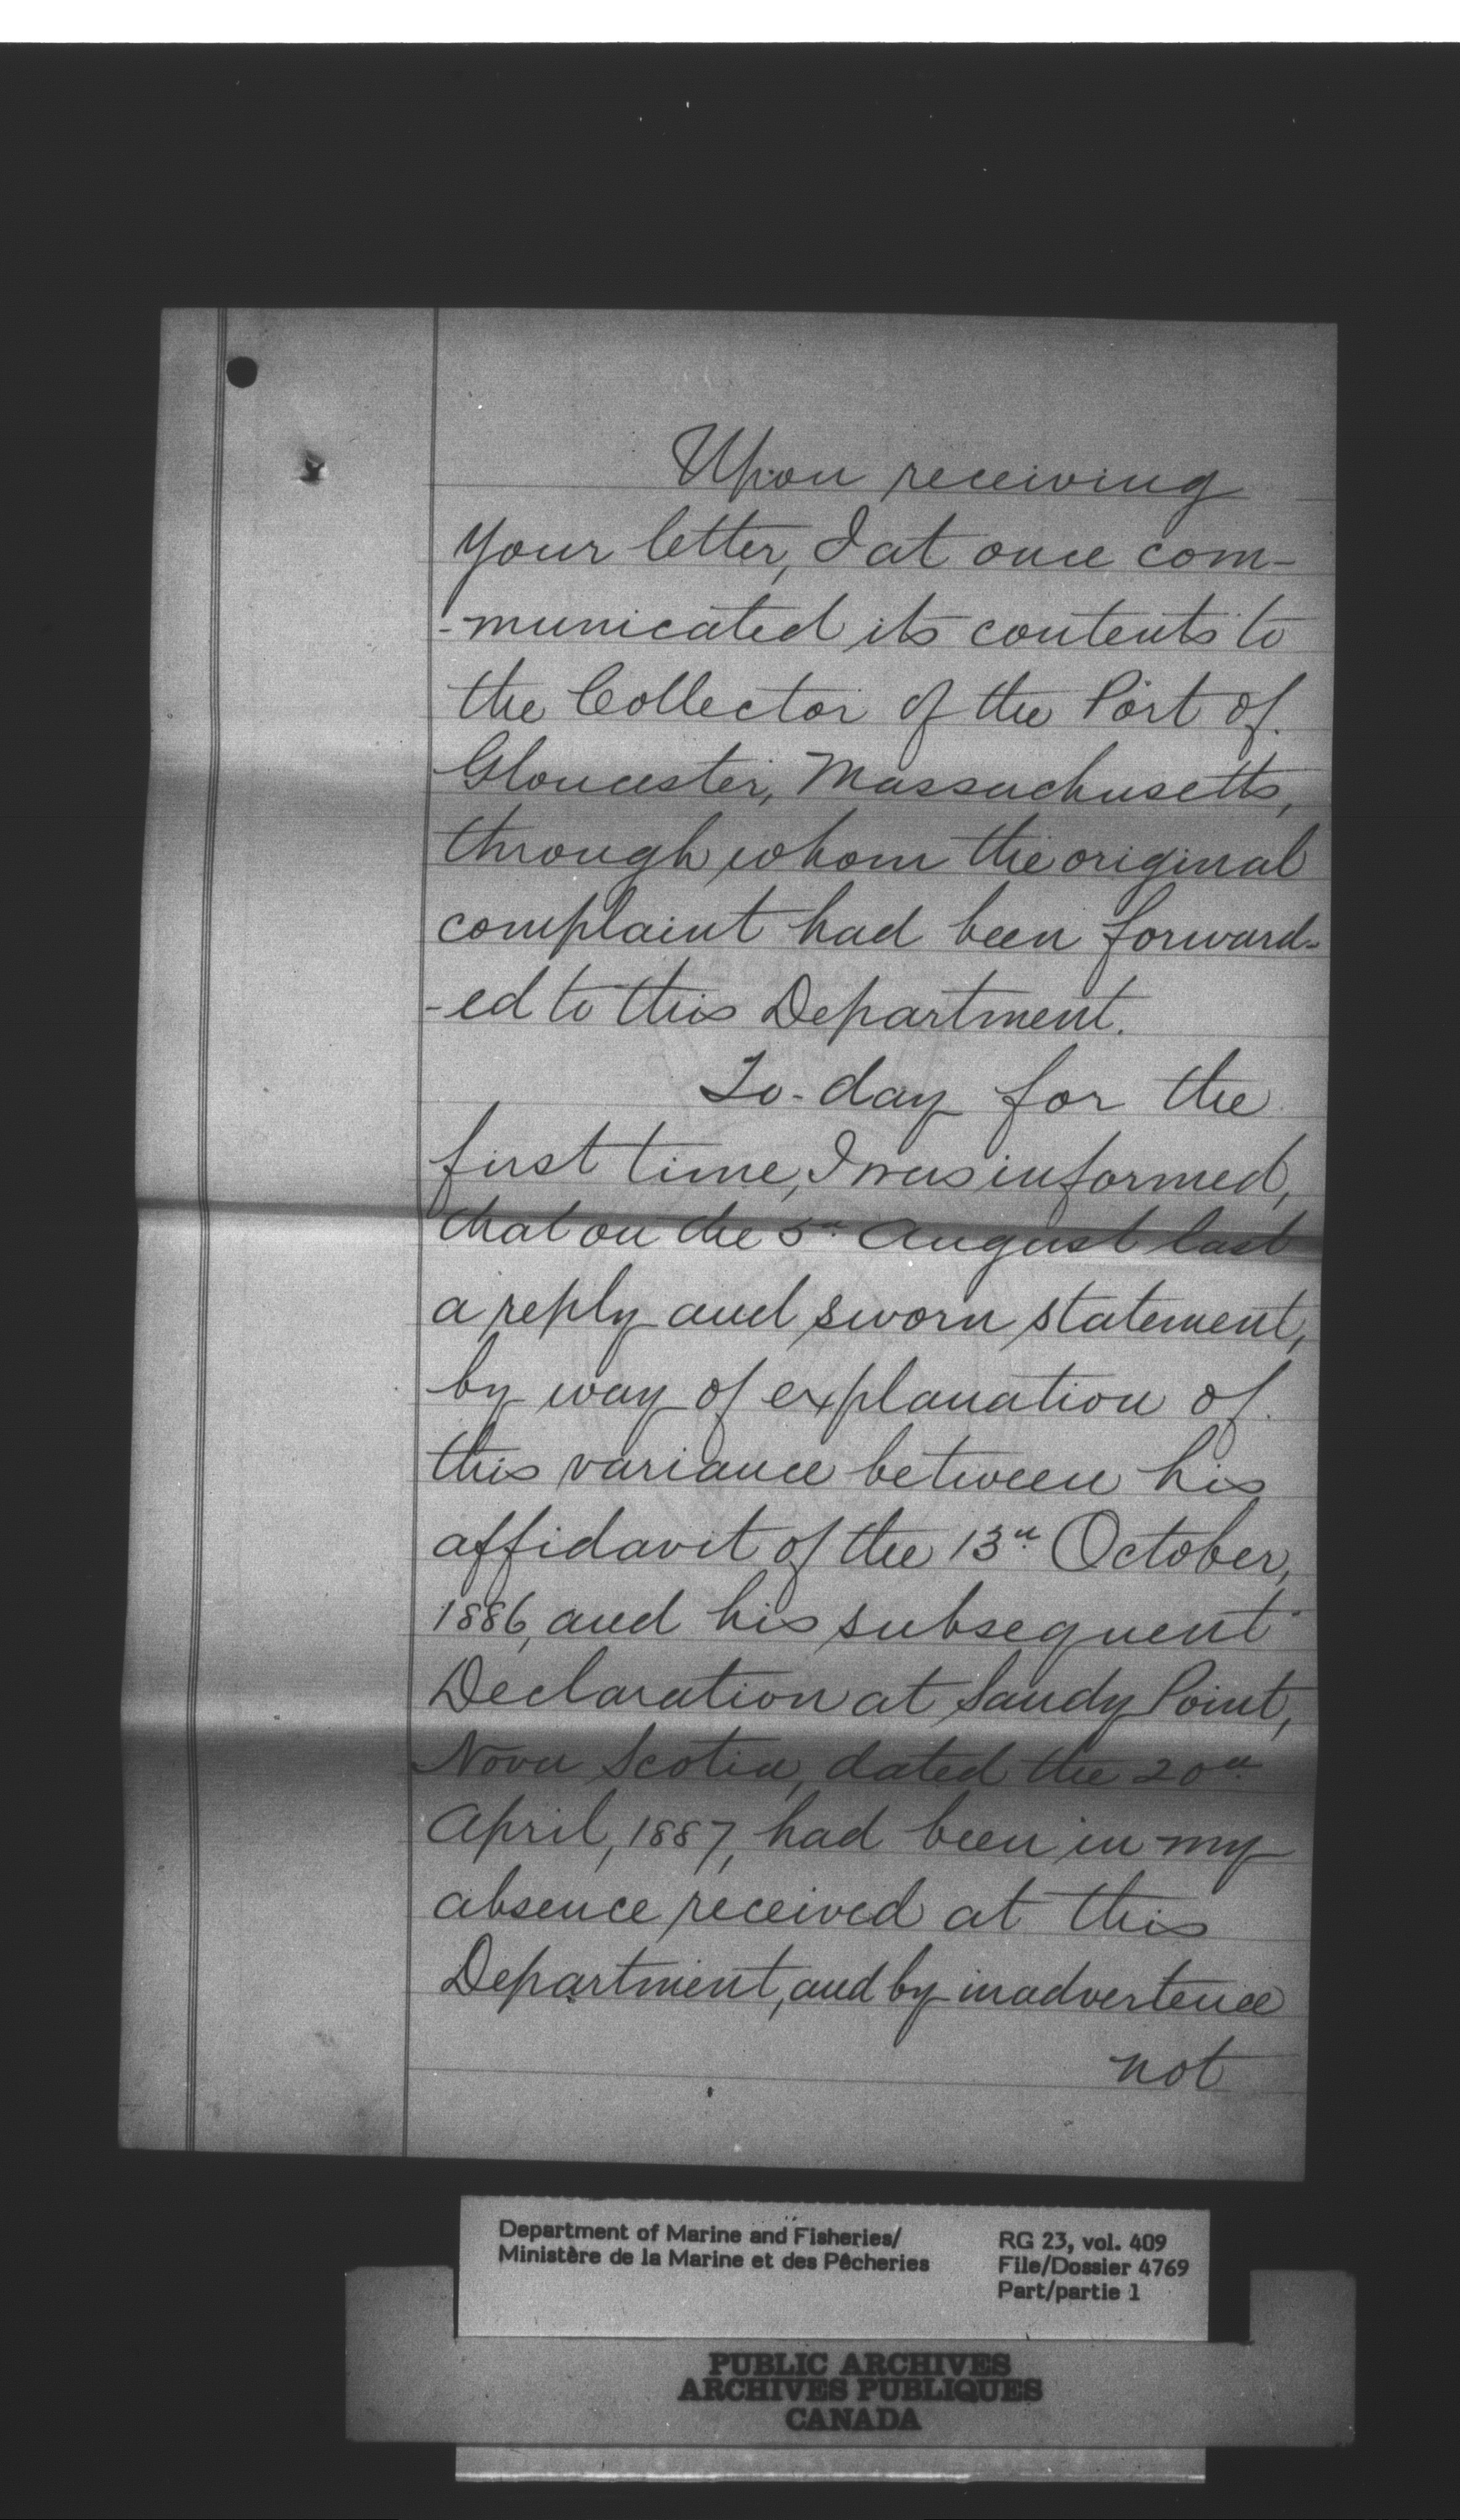 Upon receiving
your letter, I at once com-
-municated its contents to
the Collector of the Port of
Gloucester, Massachusetts,
through whom the original
complaint had been forward-
-ed to this Department.
To-day for the
first time, I was informed,
that on the 5th August last
a reply and sworn statement,
by way of explanation of
this variance between his
affidavit of the 13th October,
1886, and his subsequent
Declaration at Sandy Point,
Nova Scotia, dated the 20th
April, 1887, had been in my
absence received at this
Department, and by inadvertence
not
Department of Marine and Fisheries/
Ministère de la Marine et des Pêcheries
RG 23, vol. 409
File/Dossier 4769
Part/partie 1
PUBLIC ARCHIVES
ARCHIVES PUBLIQUES
CANADA